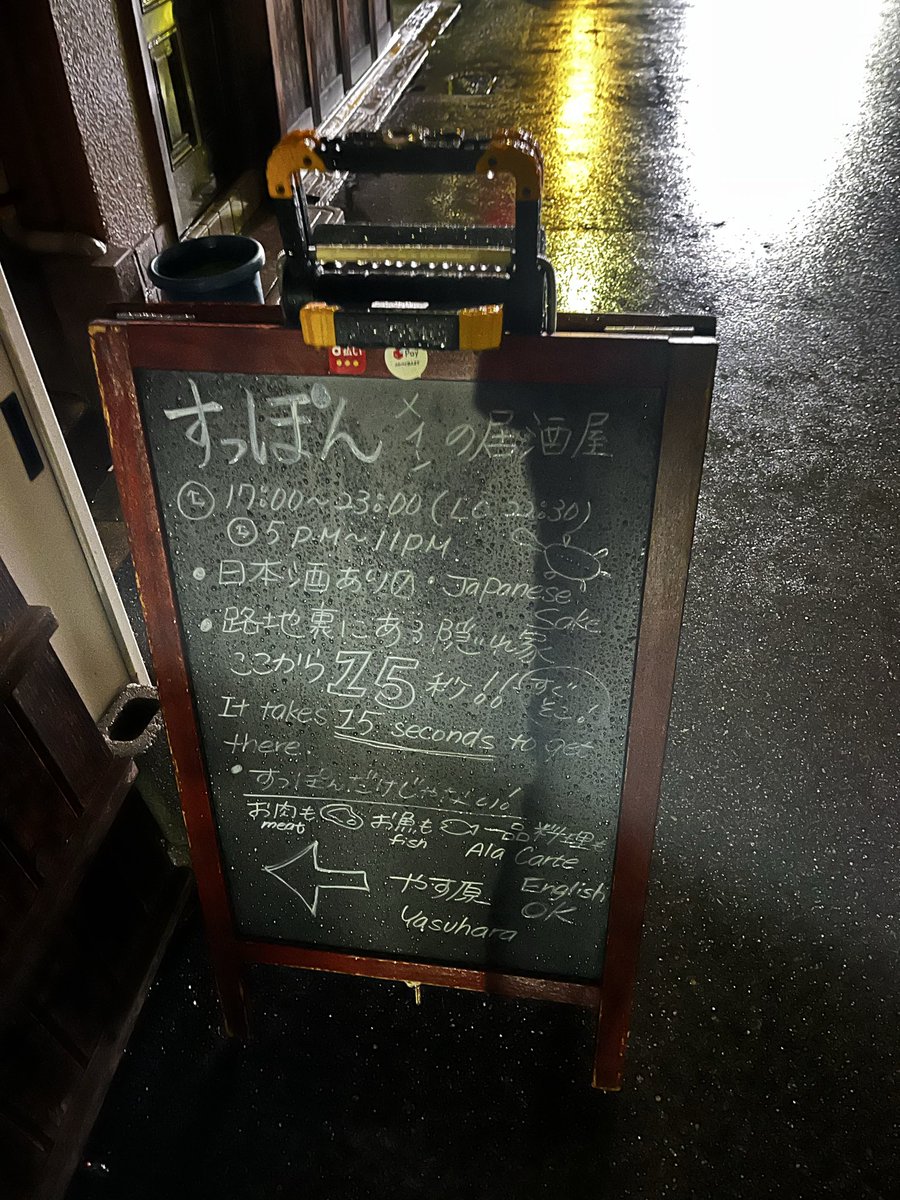 d払い
Pay
すっぽんメインの居酒屋
17:00～23:00(LO 22:30)
5PM～11PM
・日本酒あり〼・Japanese Sake
・路地裏にある隠れ家
ここから15秒!! すぐそこ!
It takes 15 seconds to get
there.
・すっぽんだけじゃない!
お肉も お魚も 一品料理も
meat fish Ala Carte
やす原 English OK
Yasuhara